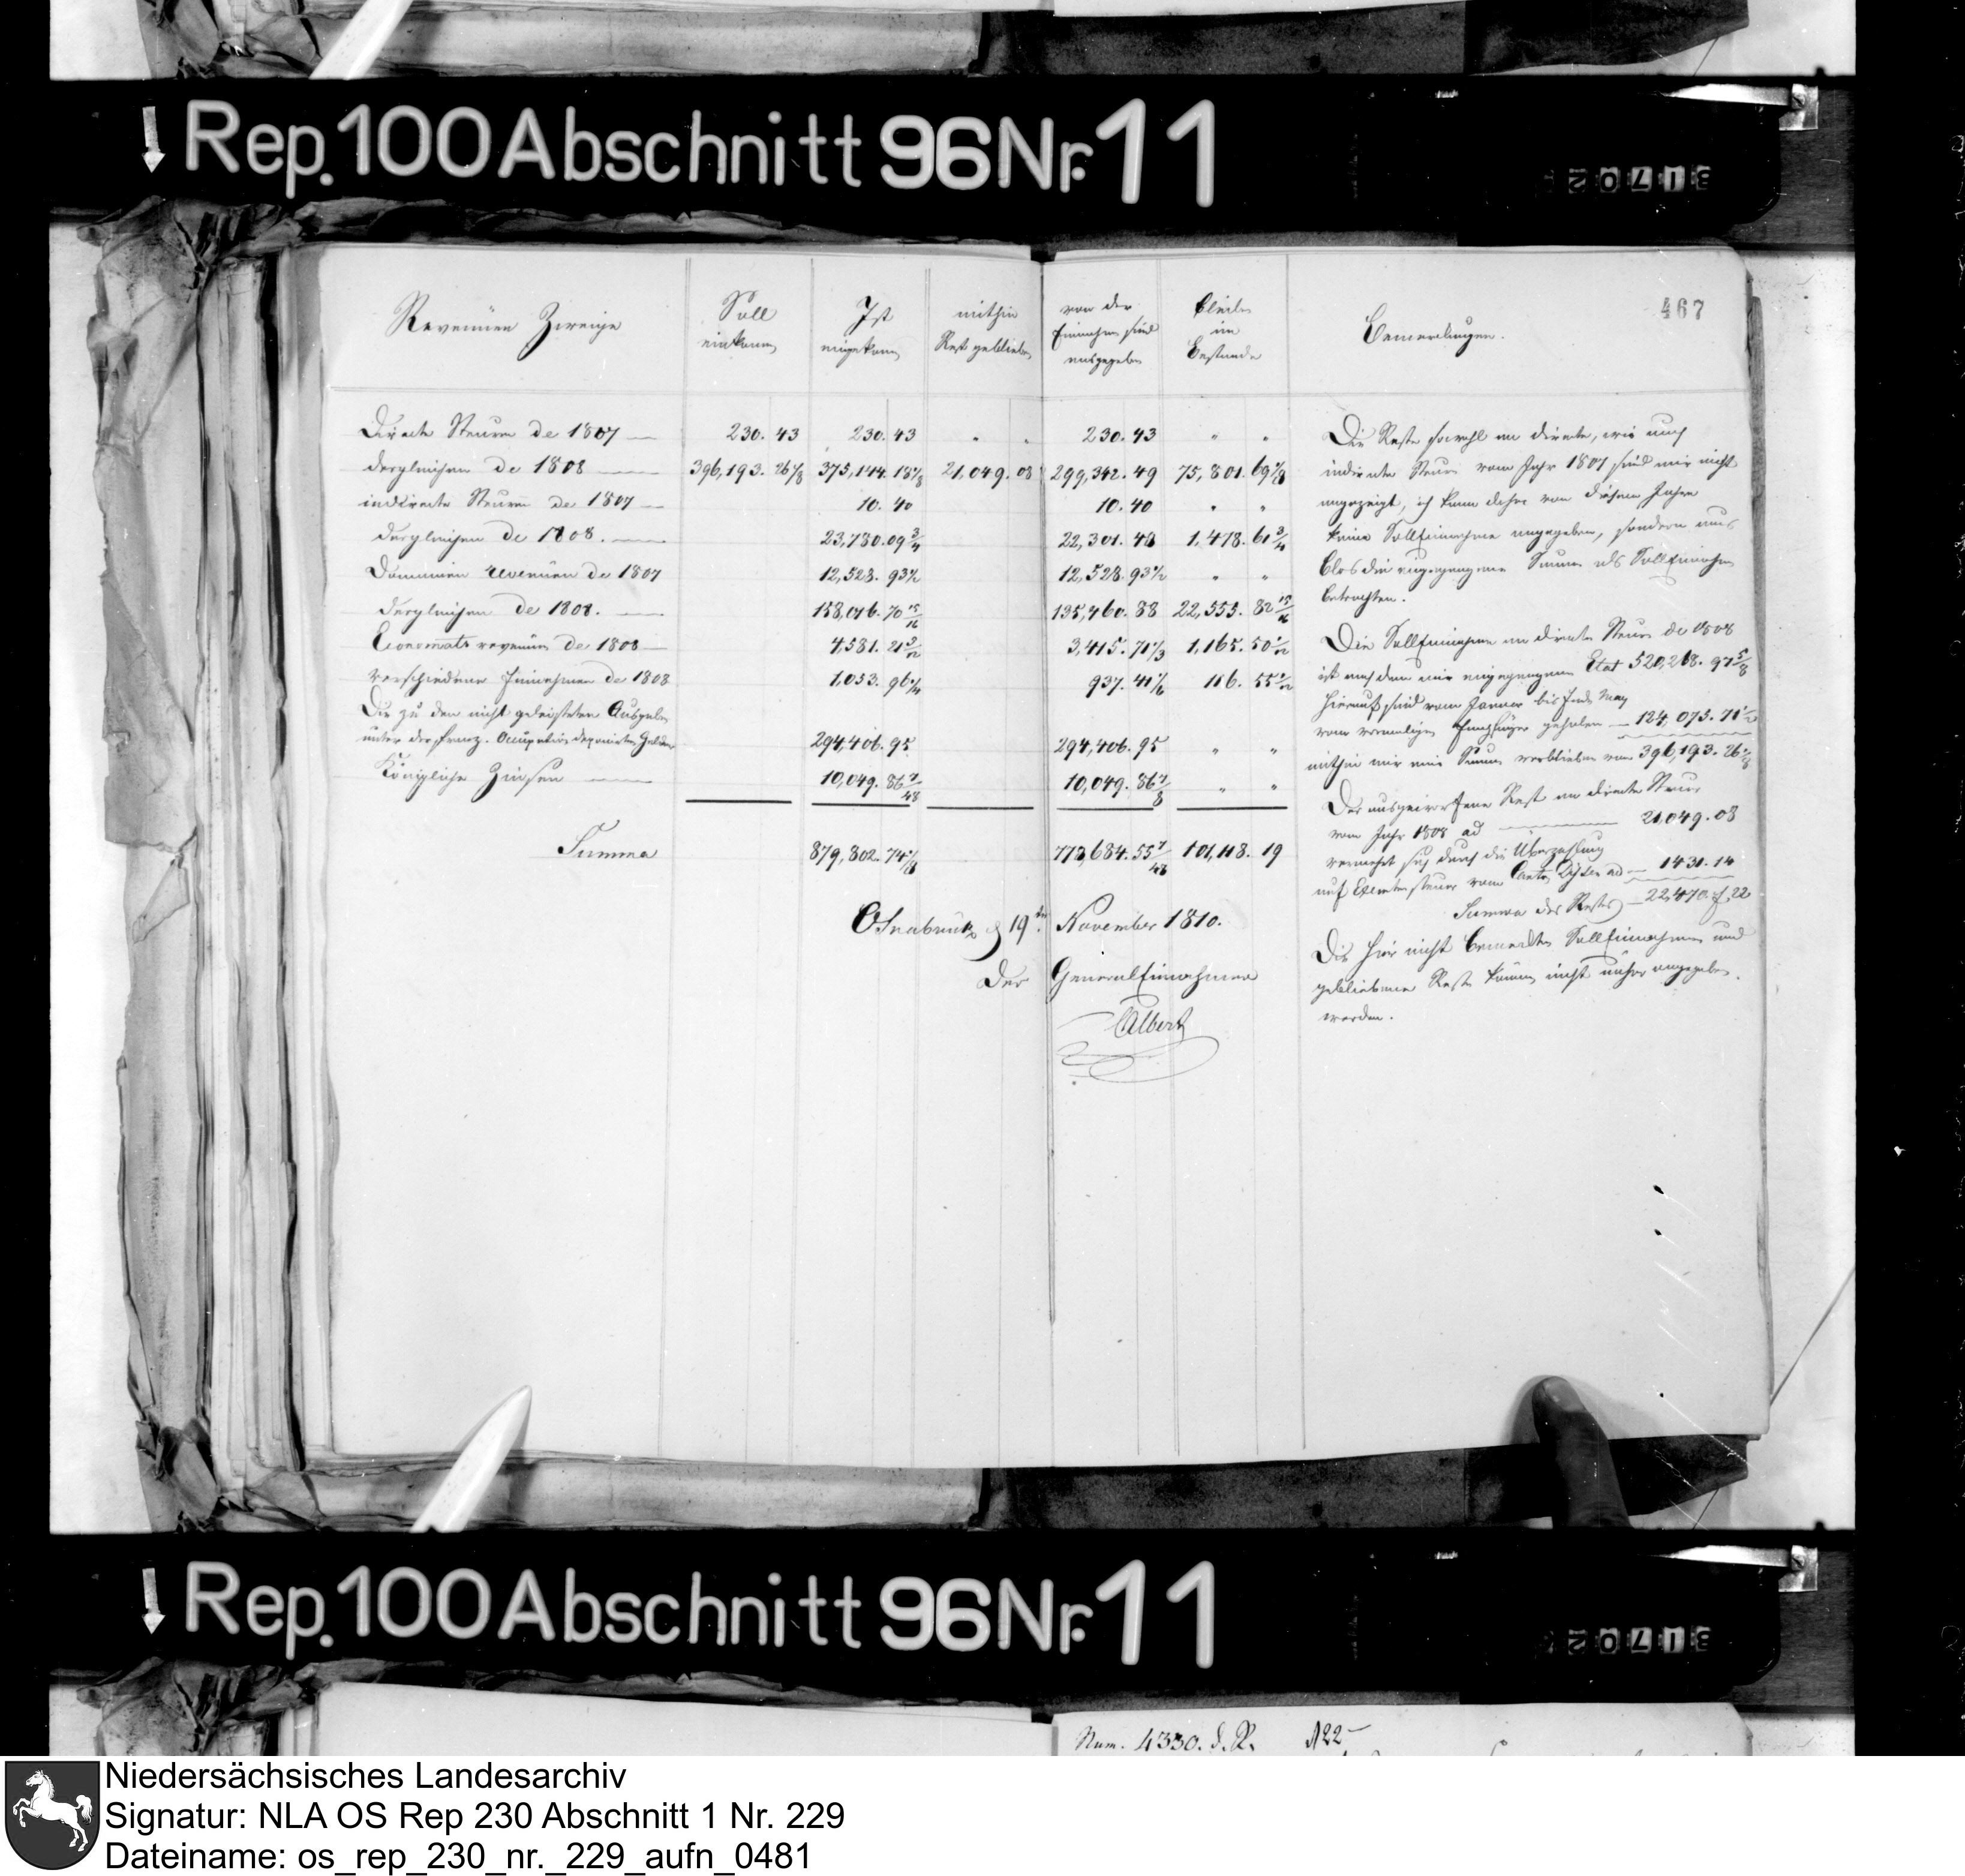 ↓ Rep. 100 Abschnitt 96 Nr. 11
467
Revenüen Zweige
Soll einkomen
Ist eingekomen
mithin Rest geblieben
von der Einnahme sind ausgegeben
bleiben im Bestande
Bemerkungen.
Directe Steuern de 1807 — 230. 43 230. 43 " " 230. 43 " "
dergleichen de 1808 — 396,193. 26 1/8 375,144. 18 1/8 21,049. 08 299,342. 49 75,801. 69 1/8
indirecte Steuern de 1807 — 10. 40 10. 40 " "
dergleichen de 1808. — 23,780. 09 3/4 22,301. 48 1,478. 61 3/4
Domainen revenüen de 1807 12,528. 93 1/2 12,528. 93 1/2 " "
dergleichen de 1808. — 158,016. 70 15/16 135,460. 88 22,555. 82 15/16
Economats revenüen de 1808 — 4,581. 21 3/12 3,415. 71 1/3 1,165. 50 1/12
verschiedene Einnahmen de 1808 1,053. 96 1/4 937. 41 1/6 116. 55 1/12
Die zu den nicht geleisteten Ausgaben
unter der franz. Occupation deponirten Gelder 294,406. 95 294,406. 95 " "
Königliche Zinsen — 10,049. 86 7/48 10,049. 86 7/8 " "
Summa 879,802. 74 1/8 778,684. 55 7/48 101,118. 19
Osnabrück d 19ten November 1810.
Der GeneralEinnehmer
Albert
Die Reste sowohl an directe, wie auch
indirecte Steuer vom Jahr 1807 sind mir nicht
angezeigt, ich kann daher von diesem Jahre
keine SollEinnahme angegeben, sondern muss
blos die eingegangene Summe als SollEinnahme
betrachten.
Die SollEinnahme an directe Steuer de 1808
ist nach dem mir eingegangenen Etat 520,268. 97 5/8
hierauf sind vom Januar bis Ende May
vom vormaligen Empfänger gehoben — 124,075. 71 1/2
mithin mir eine Summe verblieben von 396,193. 26 1/8
Der ausgeworfene Rest an directe Steuer
vom Jahr 1808 ad — 21,049. 08
vermehrt sich durch die Überzahlung
auf steuer vom Canton ad — 1431. 14
Summa des Restes — 22,470 f 22
Die hier nicht bemerkten SollEinnahmen und
gebliebene Reste können nicht näher angegeben
werden.
↓ Rep. 100 Abschnitt 96 Nr. 11
Num. 4330. d. R. 122
Niedersächsisches Landesarchiv
Signatur: NLA OS Rep 230 Abschnitt 1 Nr. 229
Dateiname: os_rep_230_nr._229_aufn_0481